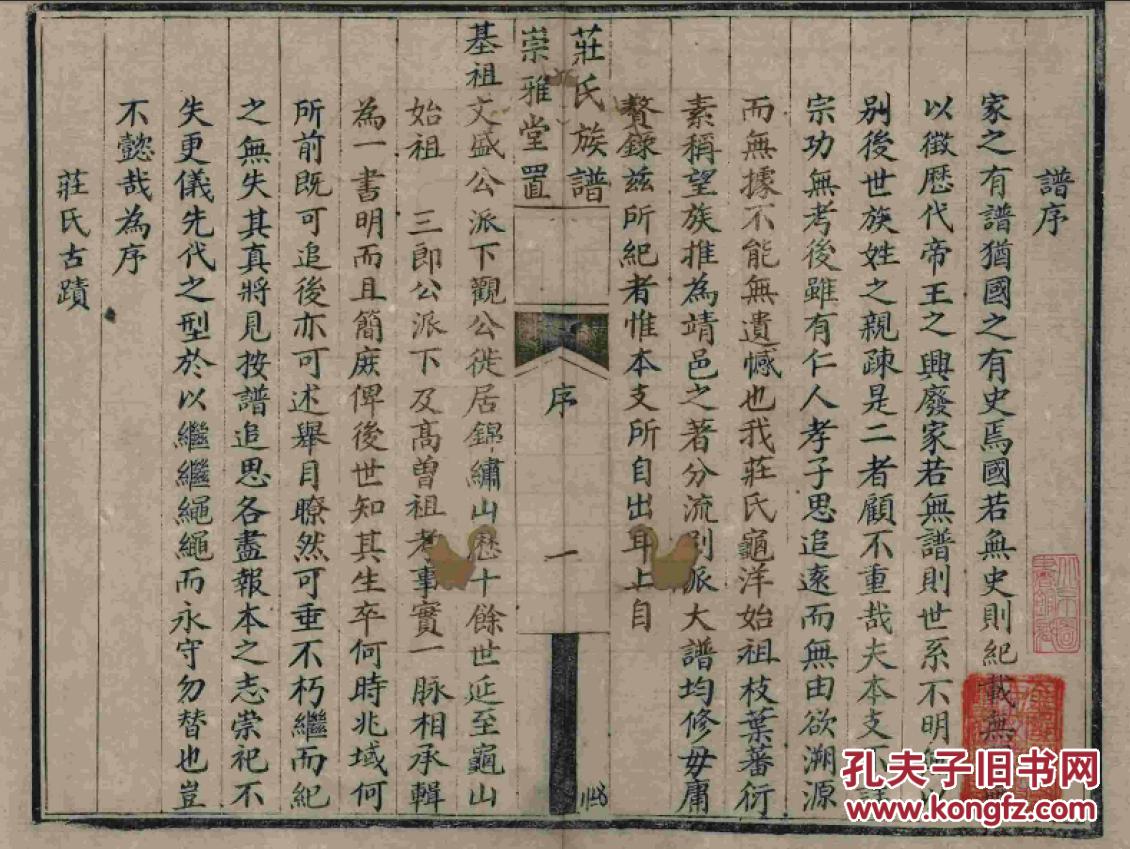 譜序
家之有譜猶國之有史焉國若無史則紀載無
以徵歷代帝王之興廢家若無譜則世系不明無以
別後世族姓之親疎是二者顧不重哉夫本支
宗功無考後雖有仁人孝子思追遠而無由欲溯源
而無據不能無遺憾也我莊氏龜洋始祖枝葉蕃衍
素稱望族推為靖邑之著分流別派大譜均修毋庸
贅錄兹所紀者惟本支所自出耳上自
莊氏族譜
崇雅堂置
序
一
基祖文盛公派下觀公徙居錦繡山歷十餘世延至龜山
始祖 三郎公派下及高曾祖考事實一脉相承輯
為一書明而且簡庻俾後世知其生卒何時兆域何
所前既可追後亦可述舉目瞭然可垂不朽繼而紀
之無失其真將見按譜追思各盡報本之志崇祀不
失更儀先代之型於以繼繼繩繩而永守勿替也豈
不懿哉為序
莊氏古蹟
孔夫子旧书网
www.kongfz.com